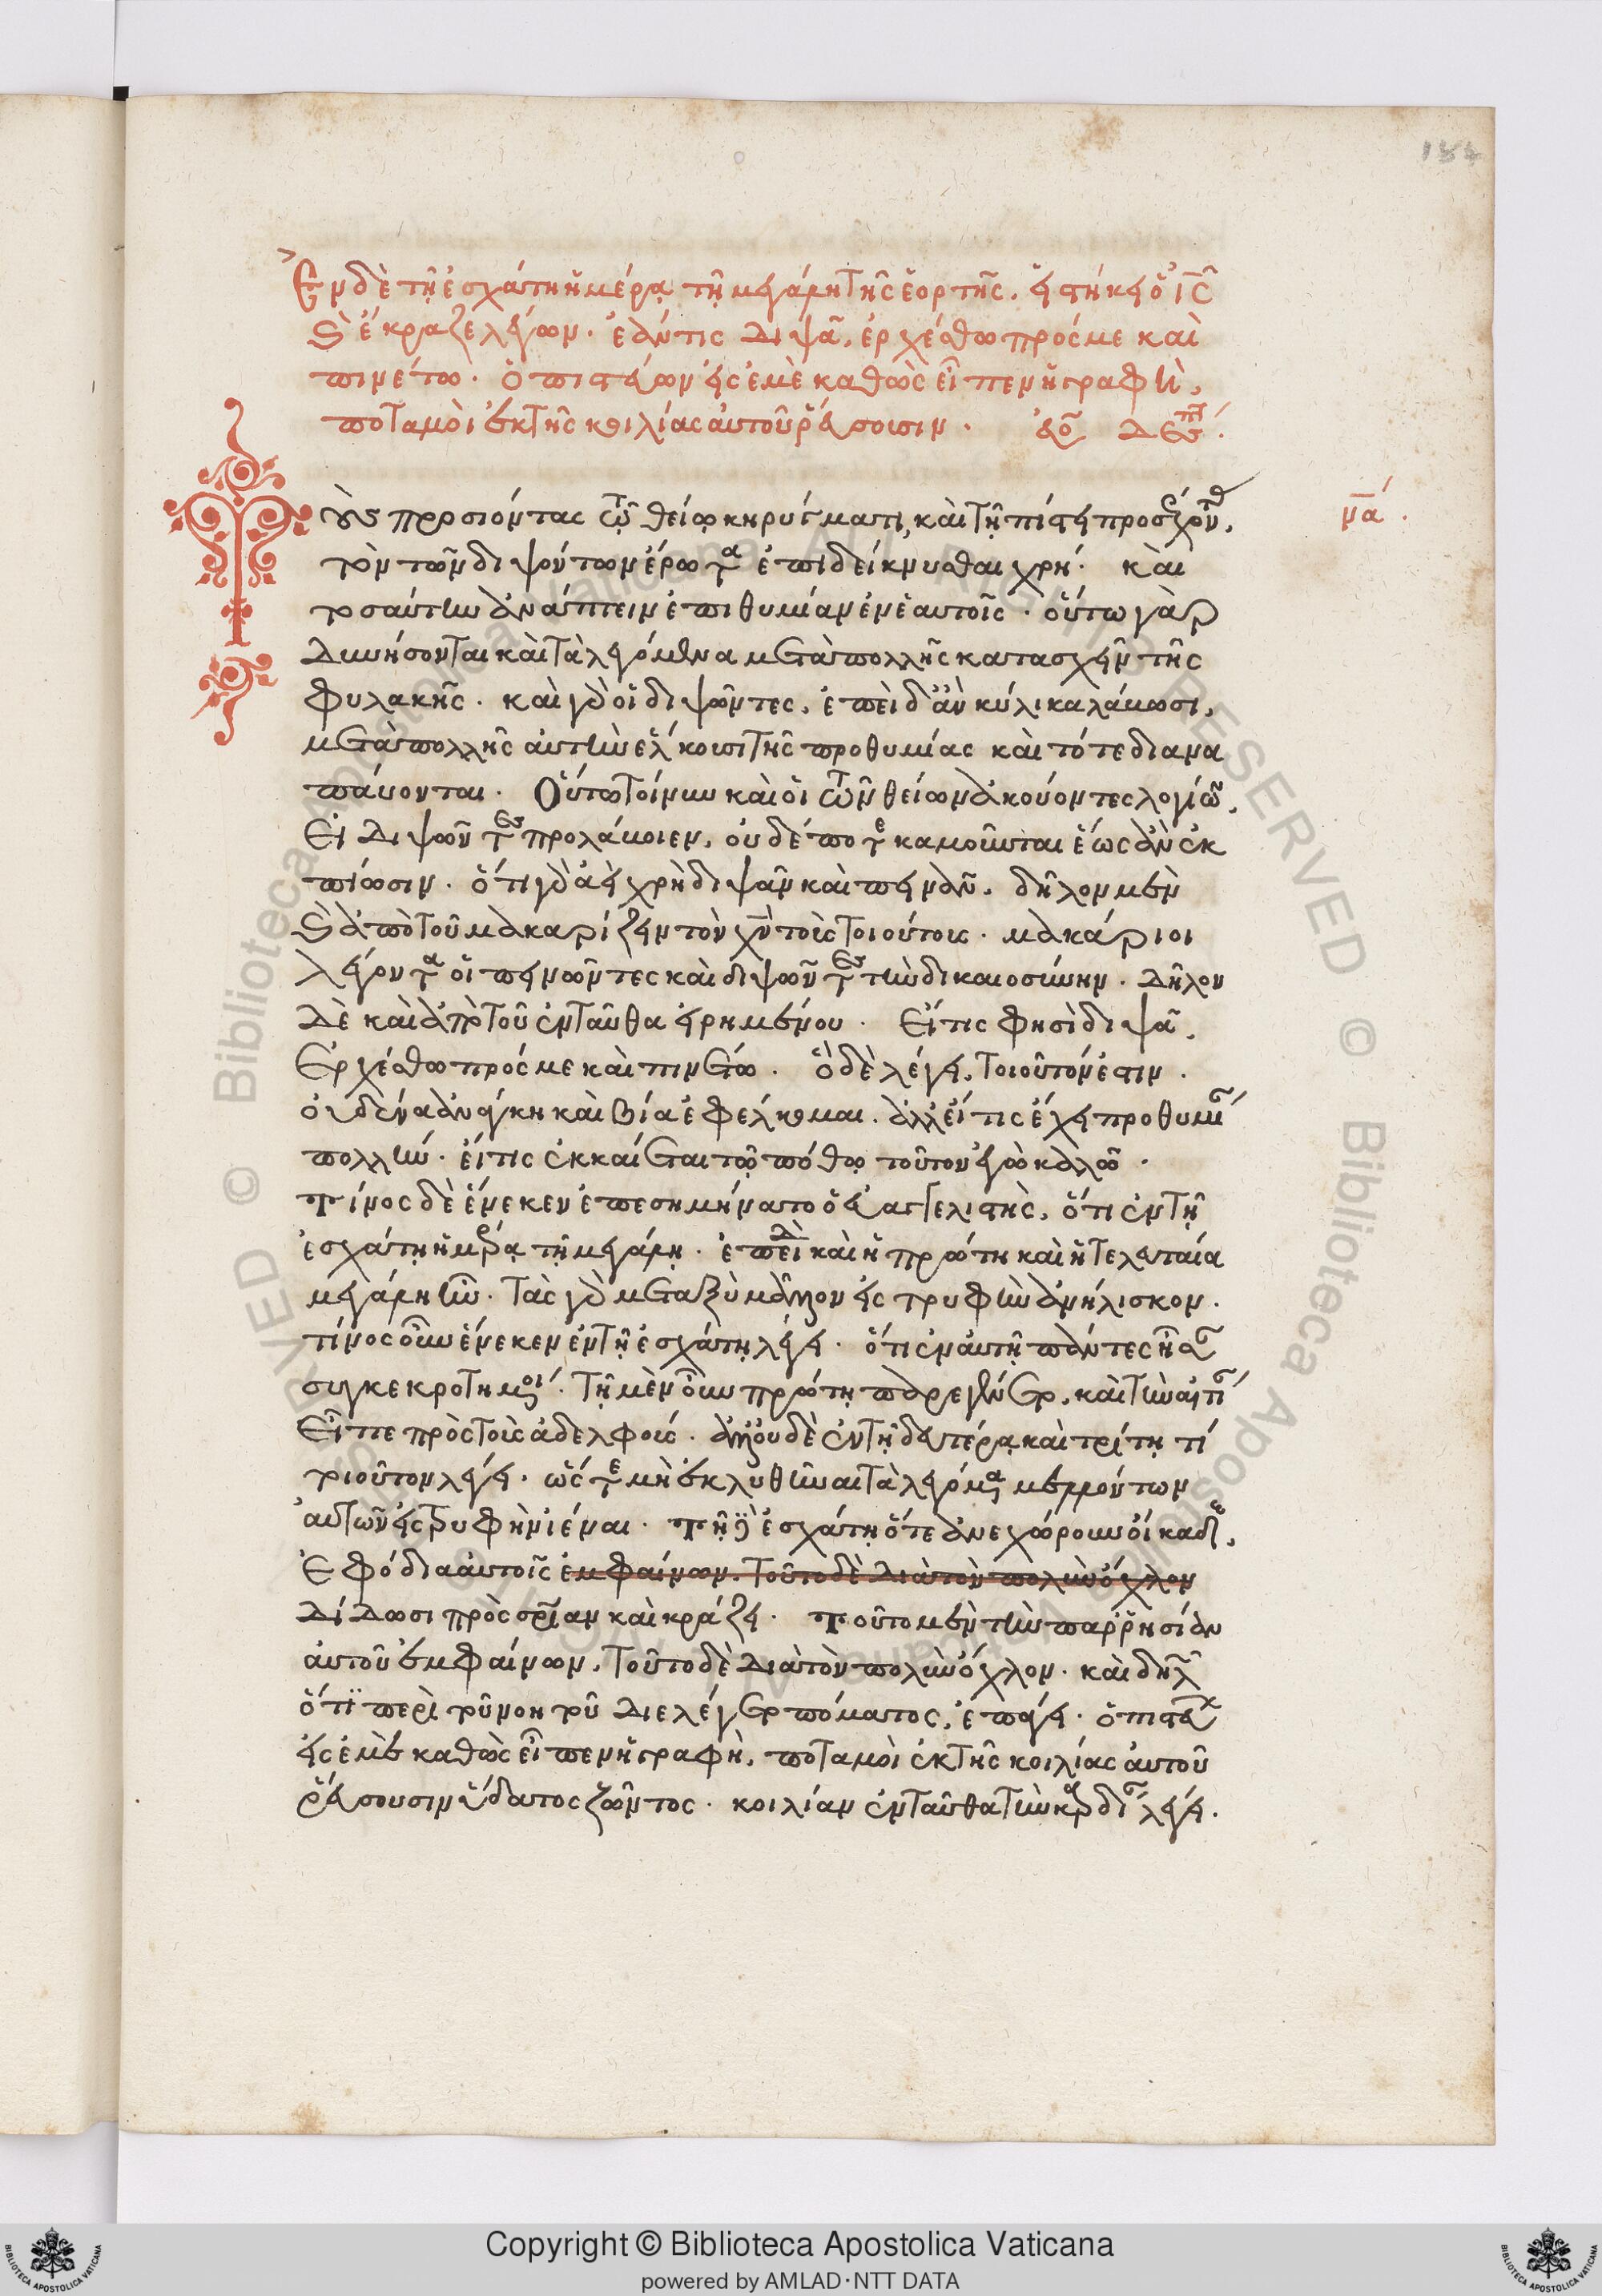 187
Ἐν δὲ τῇ ἐσχάτῃ ἡμέρᾳ τῇ μεγάλῃ τῆς ἑορτῆς, εἱστήκει ὁ ἰς
καὶ ἔκραζε λέγων· ἐάν τις διψᾷ, ἐρχέσθω πρός με καὶ
πινέτω· ὁ πιστεύων εἰς ἐμὲ καθὼς εἶπεν ἡ γραφή,
ποταμοὶ ἐκ τῆς κοιλίας αὐτοῦ ῥεύσουσιν·
Τοὺς προσιόντας τῷ θείῳ κηρύγματι, καὶ τῇ πίστει προσέχοντας,
να
τὸν τῶν διψώντων ἔρωτα ἐπιδείκνυσθαι χρή· καὶ
τοσαύτην ἀνάπτειν ἐπιθυμίαν ἐν ἑαυτοῖς· οὕτω γὰρ
δυνήσονται καὶ τὰ λεγόμενα μετὰ πολλῆς κατασχεῖν τῆς
φυλακῆς· καὶ γὰρ οἱ διψῶντες, ἐπειδὰν κύλικα λάβωσι,
μετὰ πολλῆς αὐτὴν ἕλκουσι τῆς προθυμίας καὶ τότε διανα
παύονται· Οὕτω τοίνυν καὶ οἱ τῶν θείων ἀκούοντες λογίων,
εἰ διψῶντες προλάβοιεν, οὐδέποτε καμοῦνται ἕως ἂν ἐκ
πίωσιν· ὅτι γὰρ ἀεὶ χρὴ διψᾶν καὶ πεινᾶν, δῆλον μὲν
καὶ ἀπὸ τοῦ μακαρίζειν τὸν χν τοὺς τοιούτους· μακάριοι
λέγοντα οἱ πεινῶντες καὶ διψῶντες τὴν δικαιοσύνην· δῆλον
δὲ καὶ ἀπὸ τοῦ ἐνταῦθα εἰρημένου· Εἴ τις φησὶ διψᾷ,
ἐρχέσθω πρός με καὶ πινέτω· ὃ δὲ λέγει, τοιοῦτόν ἐστιν·
οὐδένα ἀνάγκη καὶ βία ἐφέλκομαι· ἀλλ' εἴ τις ἔχει προθυμίαν
πολλήν· εἴ τις ἐκκαίεται τῷ πόθῳ τοῦτον ἐγὼ καλῶ·
Τίνος δὲ ἕνεκεν ἐπεσημήνατο ὁ εὐαγγελιστής, ὅτι ἐν τῇ
ἐσχάτῃ ἡμέρᾳ τῇ μεγάλῃ· ἐπειδὴ καὶ ἡ πρώτη καὶ ἡ τελευταία
μεγάλη ἦν· τὰς γὰρ μεταξὺ μᾶλλον εἰς τρυφὴν ἀνήλισκον·
τίνος οὖν ἕνεκεν ἐν τῇ ἐσχάτῃ λέγει· ὅτι ἐν αὐτῇ πάντες ἦσαν
συγκεκροτημένοι· τῇ μὲν οὖν πρώτῃ παρεγένετο, καὶ τὴν αἰτίαν
εἶπε πρὸς τοὺς ἀδελφούς· ἀλλ' οὐδὲ ἐν τῇ δευτέρᾳ καὶ τρίτῃ τί
τοιοῦτον λέγει· ὥστε μὴ ἐκλυθῆναι τὰ λεγόμενα μελλόντων
αὐτῶν εἰς τρυφὴν ἰέναι· Τῇ δὲ ἐσχάτῃ ὅτε ἀνεχώρουν οἴκαδε,
ἐφόδια αὐτοῖς ἐμφαίνων. Τοῦτο δὲ διὰ τὸν πολὺν ὄχλον
δίδωσι πρὸς σωτηρίαν καὶ κράζει· Τοῦτο μὲν τὴν παῤῥησίαν
αὐτοῦ ἐμφαίνων, τοῦτο δὲ διὰ τὸν πολὺν ὄχλον· καὶ δηλῶν
ὅτι περὶ τοῦ νοητοῦ διελέγετο πόματος, ἐπάγει· ὁ πιστεύων
εἰς ἐμὲ καθὼς εἶπεν ἡ γραφή, ποταμοὶ ἐκ τῆς κοιλίας αὐτοῦ
ῥεύσουσιν ὕδατος ζῶντος· κοιλίαν ἐνταῦθα τὴν καρδίαν λέγει.
Copyright © Biblioteca Apostolica Vaticana
powered by AMLAD·NTT DATA